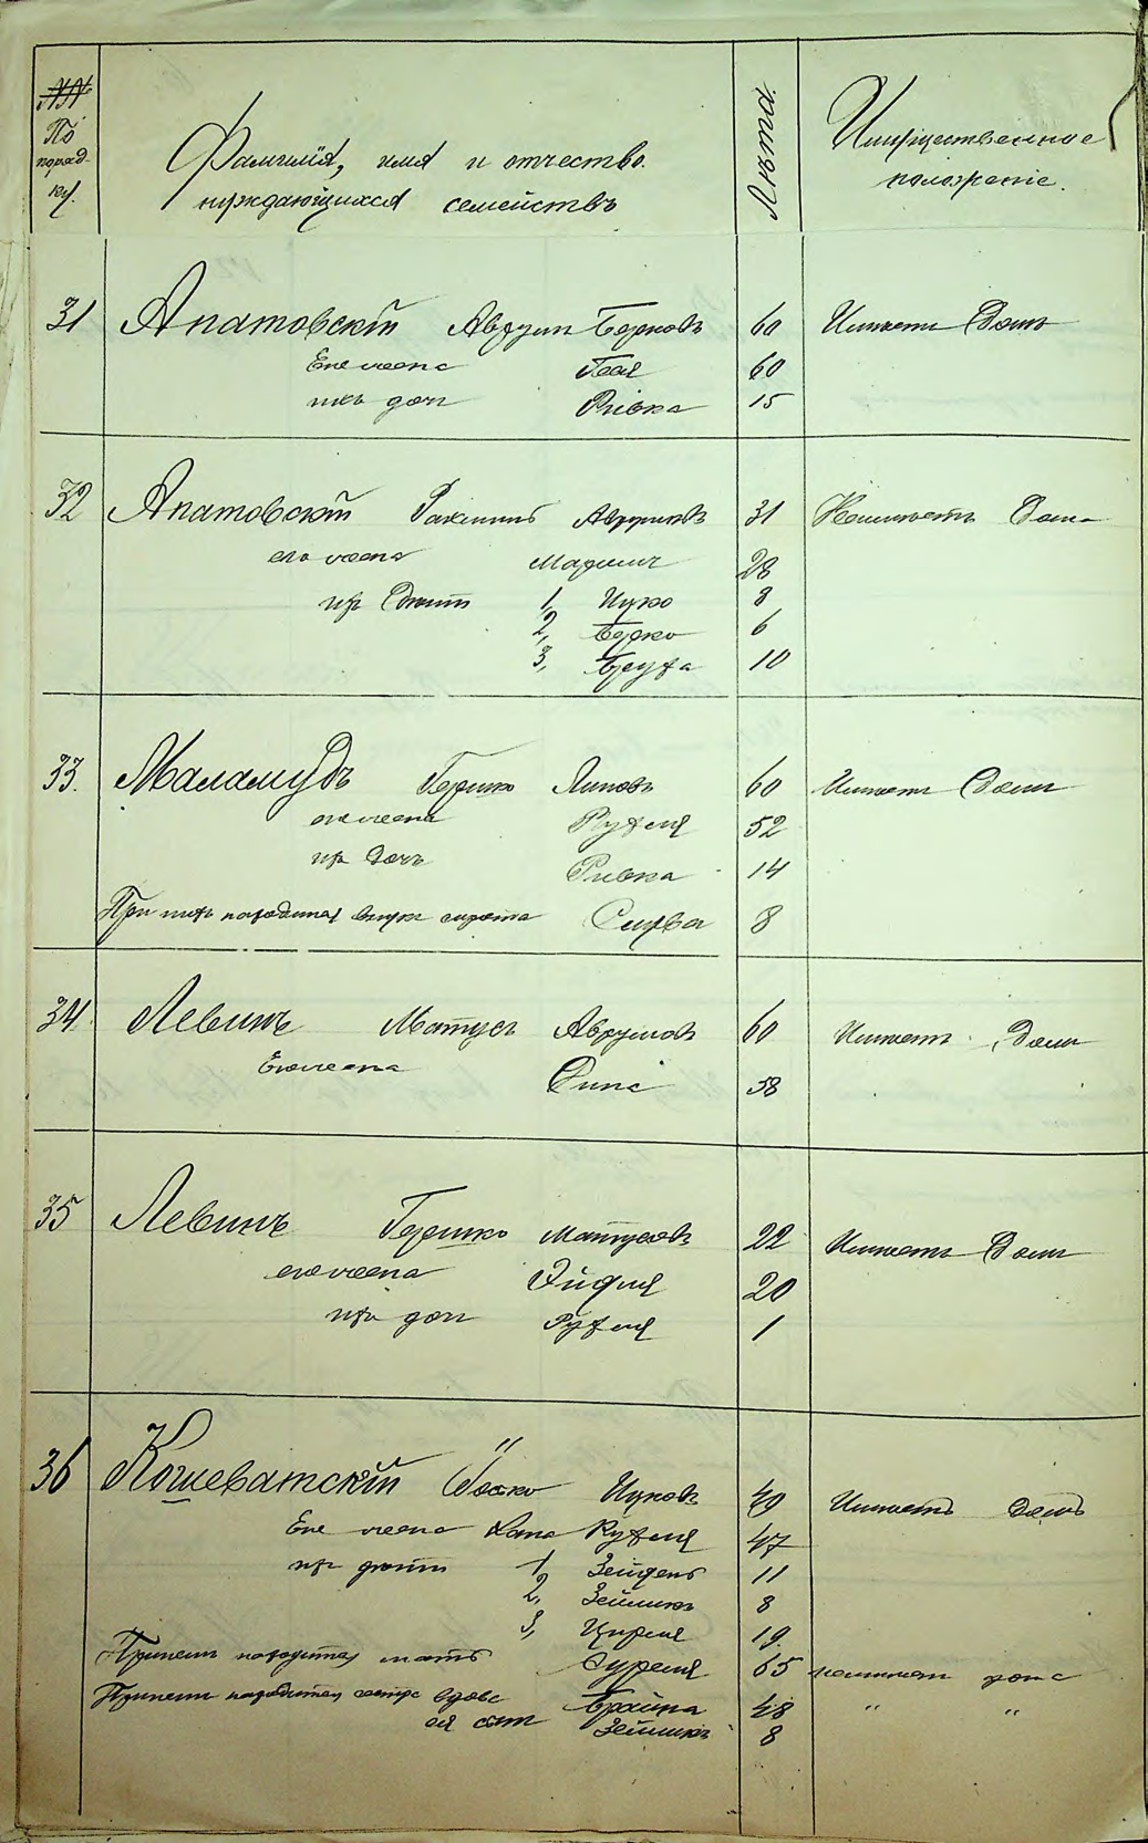 №№ По поряд- ку.
Фамилія, имя и отчество
нуждающихся семействъ
Лѣта.
Имущественное
положеніе.
31 Апатовскій Аврумъ Берковъ 60 Имѣетъ Домъ
Его жена Геня 60
ихъ доч Ривка 15
32 Апатовскій Рахмиль Аврумовъ 31 Неимѣетъ Дома
его жена Мариам 28
их Дѣти 1, Ицко 8
2, Берко 6
3, Бруха 10
33. Маламудъ Гершко Липовъ 60 Имѣетъ Домъ
его жена Рухля 52
их Дочь Ривка 14
При нихъ находится внука сирота 8
34 Левинъ Матусъ Аврумовъ 60 Имѣетъ Домъ
Его жена Дина 58
35 Левинъ Гершко Матусовъ 22 Имѣетъ Домъ
его жена Эйдля 20
ихъ доч Рухля 1
36 Кошеватскій Іосько Ицковъ 49 Имѣетъ домъ
Его жена Хана Рухля 47
их дѣти 1, Зейдель 11
2, Зейликъ 8
3, Цирля 19.
При нем находится мать Сурля 65 неимѣет дома
При нем находится сестра вдова Брайна 48 " "
ея сын Зейликъ 8